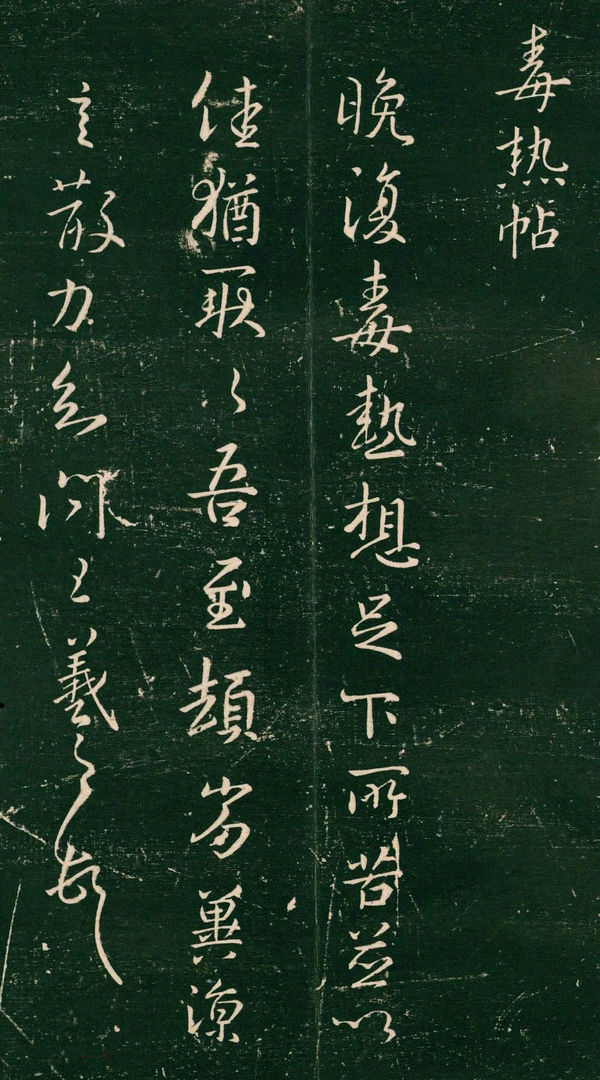 毒热帖
晚復毒熱想足下所苦並以
佳猶耿〻吾至頓劣冀涼
言散力知問王羲之頓首